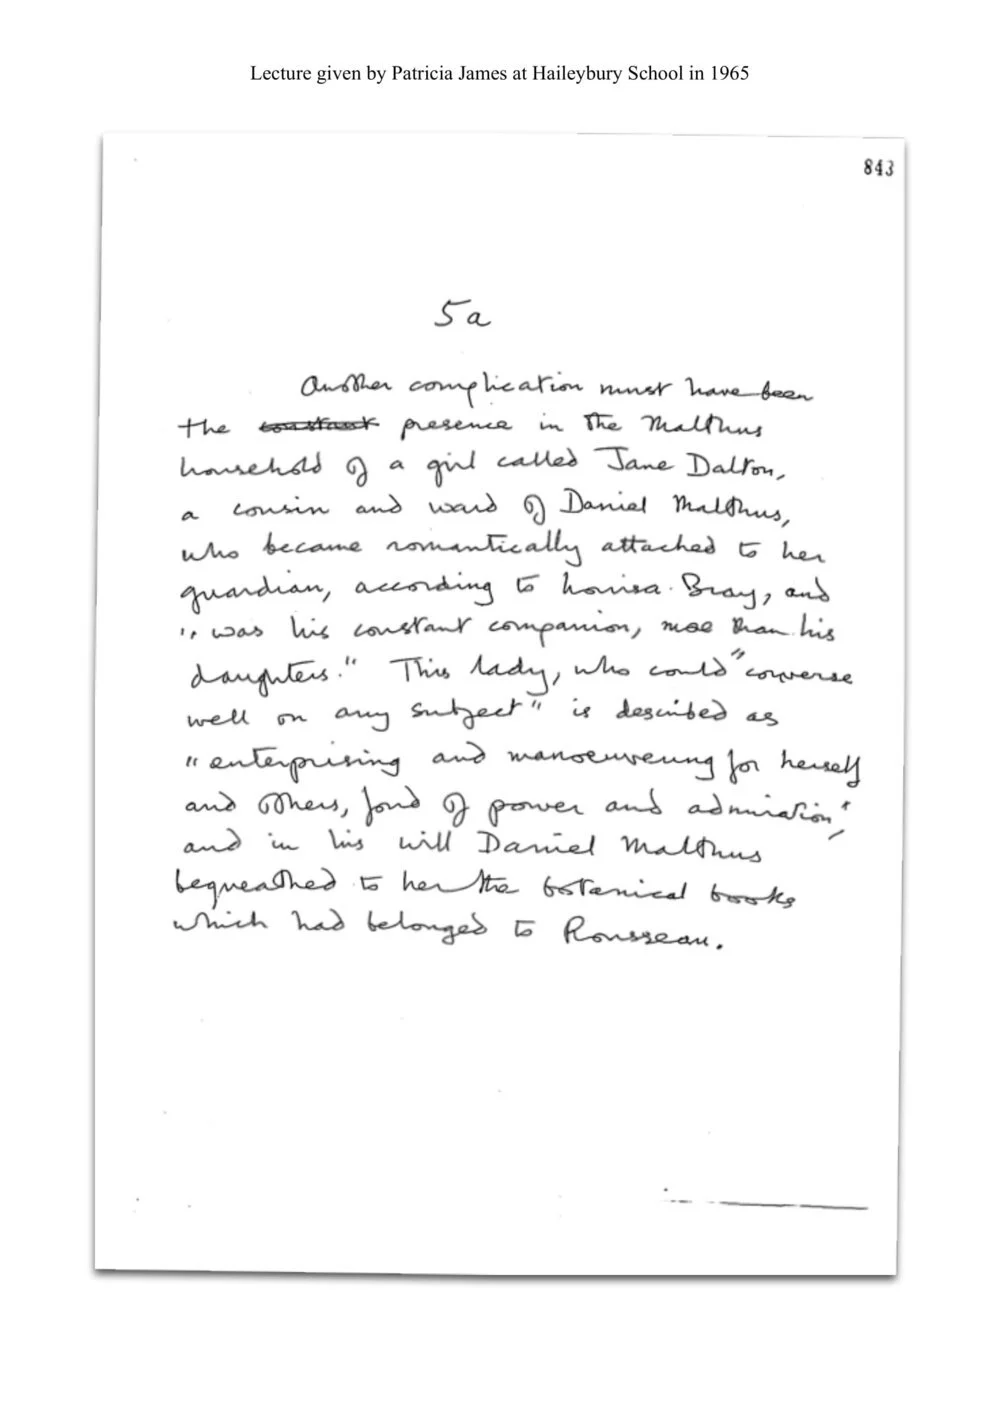 Lecture given by Patricia James at Haileybury School in 1965
843
5a
Another complication must have been
the constant presence in the Malthus
household of a girl called Jane Dalton,
a cousin and ward of Daniel Malthus,
who became romantically attached to her
guardian, according to Louisa Bray, and
"was his constant companion, more than his
daughters." This lady, who could "converse
well on any subject" is described as
"enterprising and manoeuvering for herself
and others, fond of power and admiration",
and in his will Daniel Malthus
bequeathed to her the botanical books
which had belonged to Rousseau.